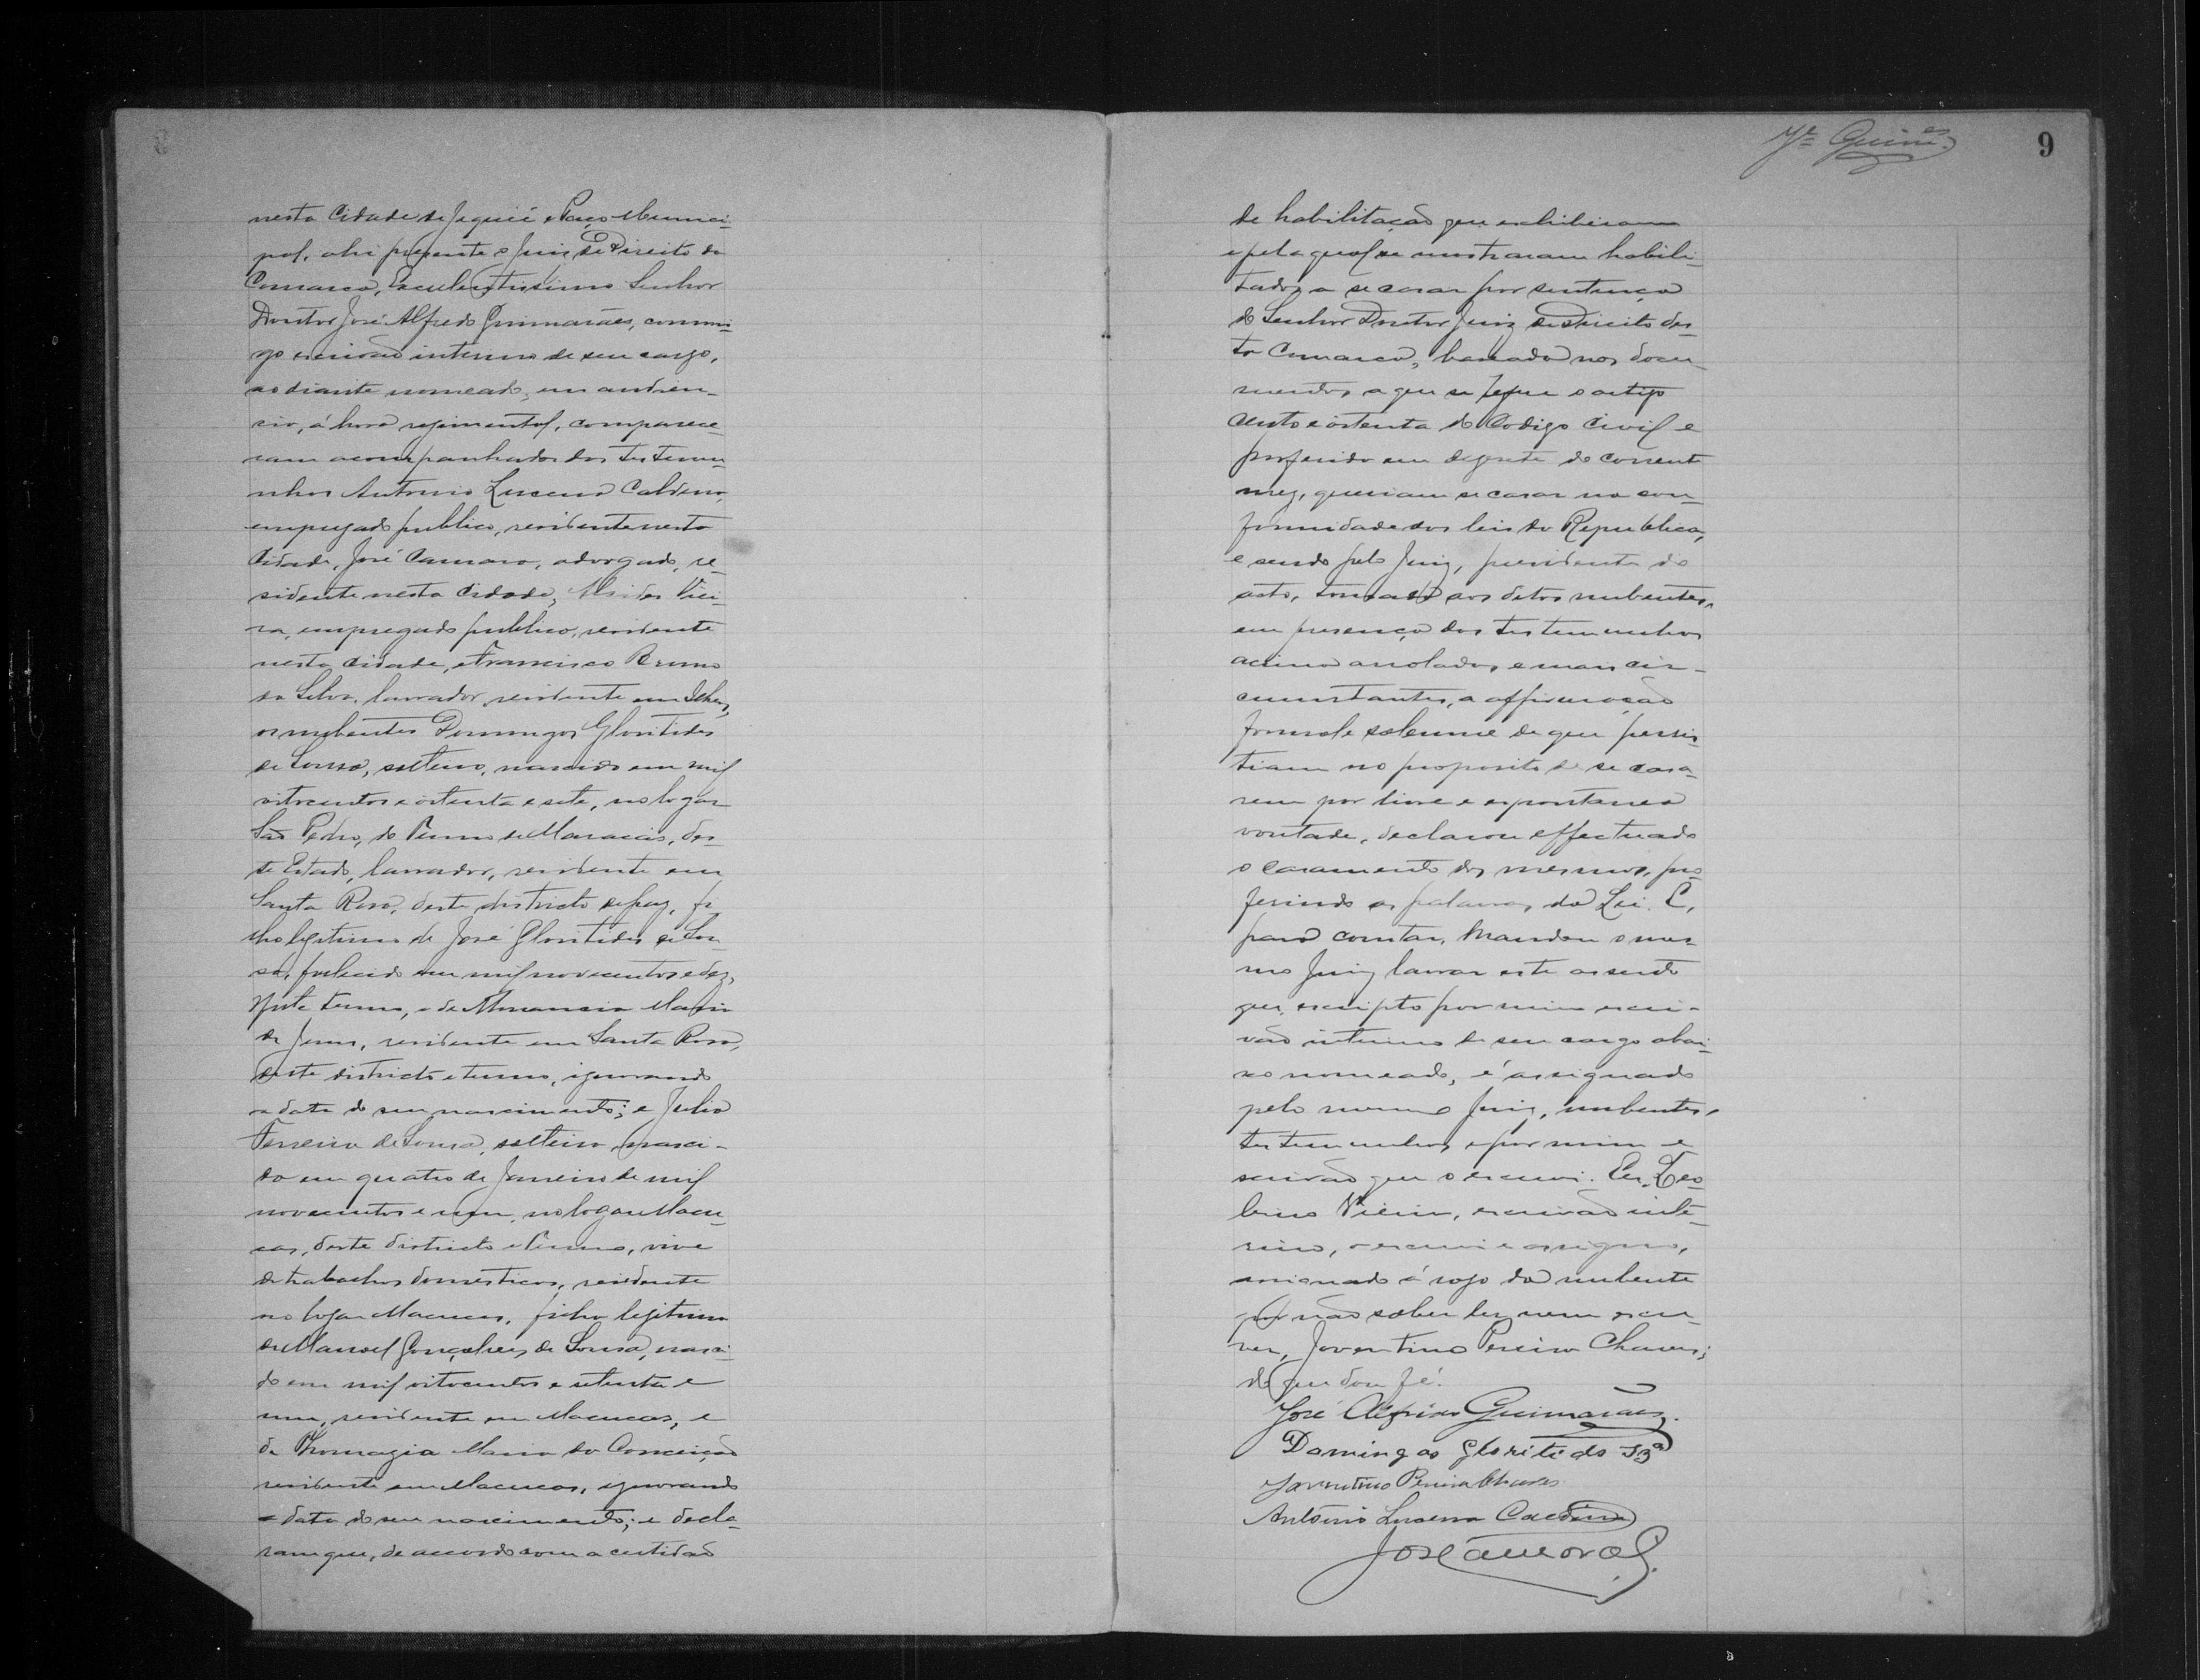 nesta Cidade de Jequié e Paço Munici-
pal, ahi presente o Juiz de Direito da
Comarca, Excellentissimo Senhor
Doutor José Alfredo Guimarães, commi-
go escrivão interino de seu cargo,
ao diante nomeado, em audien-
cia, á hora regimental, comparece-
ram acompanhados das testemu-
nhas Antonio Lucena Caldino,
empregado publico, residente nesta
Cidade, José Camara, advogado, re-
sidente nesta Cidade, Viei-
ra, empregado publico, residente
nesta Cidade, e Francisco Bruno
da Silva, lavrador, residente em Ilheos,
os nubentes Domingos Gloritides
de Sousa, solteiro, nascido em mil
oitocentos e oitenta e sete, no logar
São Pedro, do Termo de Maracás, des-
te Estado, lavrador, residente em
Santa Rosa, deste districto de paz, fi
lho legitimo de José Gloritides de Sou-
sa, fallecido em mil novecentos e dez,
neste termo, e de Maria
de Jesus, residente em Santa Rosa,
deste districto e termo, ignorando
a data do seu nascimento; e Julia
Ferreira de Sousa, solteira, nasci-
da em quatro de Janeiro de mil
novecentos e um, no logar Macu-
cas, deste districto e Termo, vive
de trabalhos domesticos, residente
no logar Macucas, filha legitima
de Manoel Gonçalves de Sousa, nasci-
do em mil oitocentos e setenta e
um, residente em Macucas, e
de Thomazia Maria da Conceição
residente em Macucas, ignorando
a data do seu nascimento; e decla-
ram que, de accordo com a certidão
Je Guim.es
9
de habilitação que exhibiram
e pela qual se mostraram habili-
tados a se casar por sentença
do Senhor Doutor Juiz de Direito des-
ta Comarca, baseada nos docu-
mentos a que se refere o artigo
cento e oitenta do Codigo Civil e
proferida em dezesete do corrente
mez, queriam se casar na con-
formidade das leis da Republica,
e sendo pelo Juiz, presidente do
acto, tomada aos ditos nubentes,
em presença das testemunhas
acima arroladas e mais cir-
cumstantes, a affirmação
formal e solemne de que persis-
tiam no proposito de se casa-
rem por livre e espontanea
vontade, declarou effectuado
o casamento dos mesmos, pro-
ferindo as palavras da Lei. E,
para constar, mandou o mes-
mo Juiz lavrar este assento
que, escripto por mim escri-
vão interino de seu cargo abai-
xo nomeado, é assignado
pelo mesmo Juiz, nubentes,
testemunhas, e por mim e
scrivão que o escrevi. Eu, Leo-
lino Vieira, escrivão inte-
rino, o escrevi e assigno,
assignando á rogo da nubente
por não saber ler nem escre-
ver, Joventino Pereira Chaves;
do que dou fé.
José Alfredo Guimarães.
Domingos Gloritides
Joventino Pereira Chaves
Antonio Lucena Caldino
José Camara